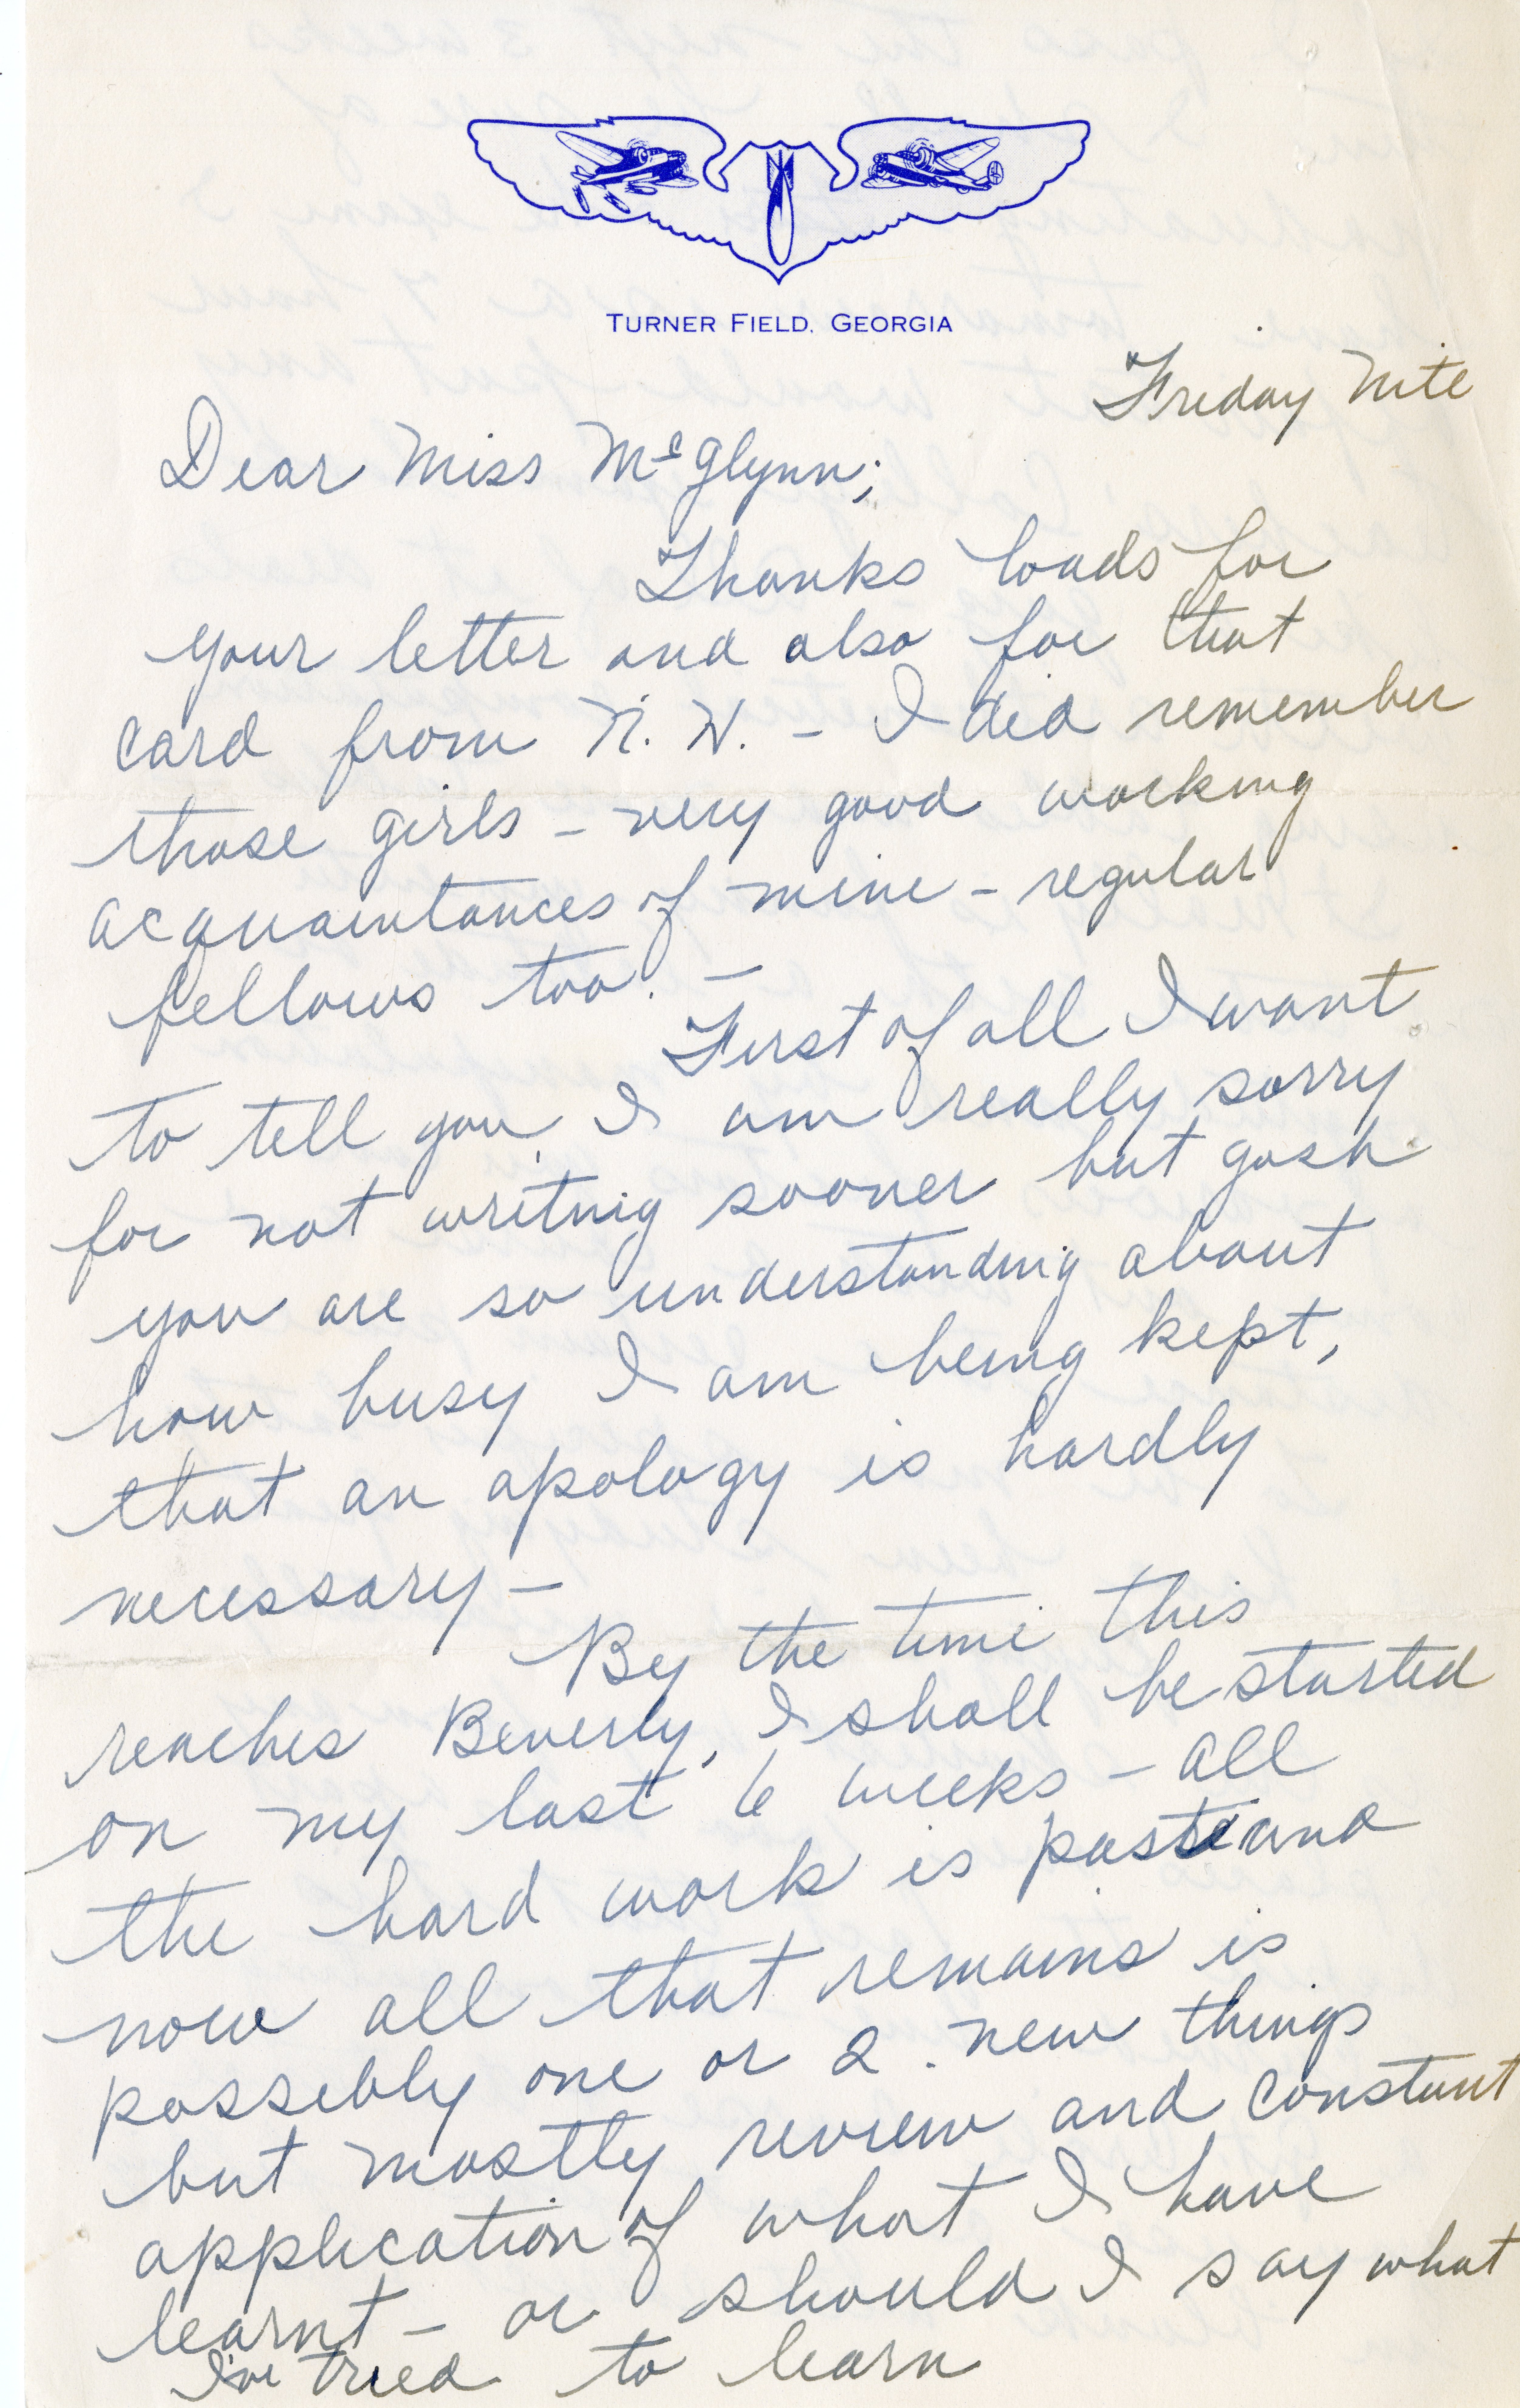 TURNER FIELD, GEORGIA
Friday Nite
Dear Miss McGlynn;
Thanks loads for
your letter and also for that
card from N. H. - I did remember
those girls - very good working
acquaintances of mine - regular
fellows too. -
First of all I want
to tell you, I am really sorry
for not writing sooner but gosh
you are so understanding about
how busy I am being kept,
that an apology is hardly
necessary -
By the time this
reaches Beverly, I shall be started
on my last 6 weeks - all
the hard work is past and
now all that remains is
possibly one or 2 new things
but mostly review and constant
application of what I have
learnt - or should I say what
I've tried to learn